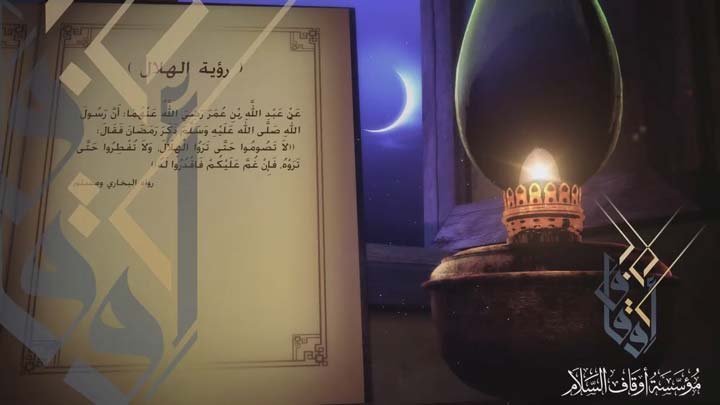 ( رؤية الهلال )
عَنْ عَبْدِ اللَّهِ بْنِ عُمَرَ رَضِيَ اللَّهُ عَنْهُمَا: أَنَّ رَسُولَ
اللَّهِ صَلَّى اللَّهُ عَلَيْهِ وَسَلَّمَ ذَكَرَ رَمَضَانَ فَقَالَ:
((لاَ تَصُومُوا حَتَّى تَرَوُا الْهِلاَلَ، وَلاَ تُفْطِرُوا حَتَّى
تَرَوْهُ، فَإِنْ غُمَّ عَلَيْكُمْ فَاقْدُرُوا لَهُ))
رواه البخاري ومسلم
أوقاف
مُؤسَّسَةُ أوقاف السَّلَام